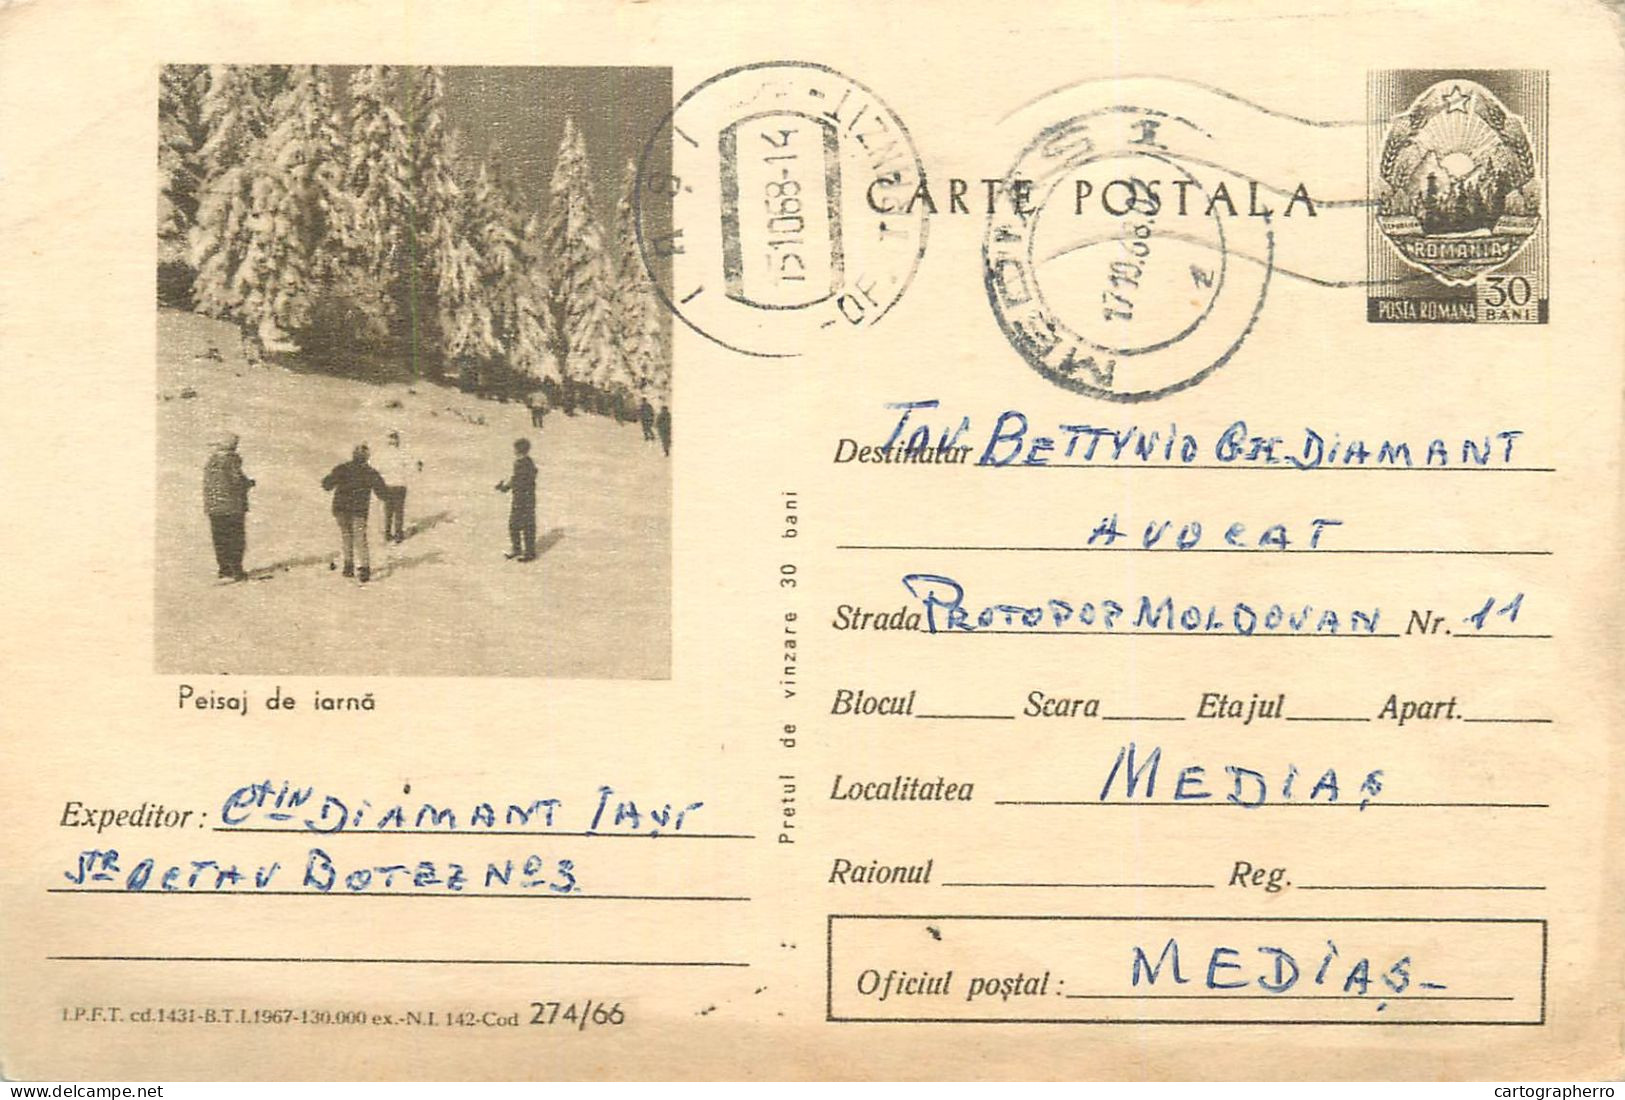 CARTE POSTALA
ROMANIA
POSTA ROMANA 30 BANI
IAȘI
151068-14
OF. TRANZIT-
MEDIAȘ 1
17.10.68
2
Destinatar Tov. BETTYNIO GH. DIAMANT
AVOCAT
Strada PROTOPOP MOLDOVAN Nr. 11
Blocul Scara Etajul Apart.
Localitatea MEDIAȘ
Raionul Reg.
Oficiul poștal: MEDIAȘ-
Pretul de vinzare 30 bani
Peisaj de iarnă
Expeditor: CTIN DIAMANT IAȘI
STR OCTAV BOTEZ No 3
I.P.F.T. cd.1431-B.T.I.1967-130.000 ex.-N.I. 142-Cod 274/66
delcampe.net
cartographerro